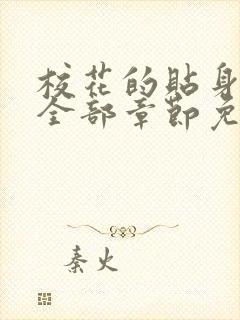 校花的贴身
全部章节免
秦火